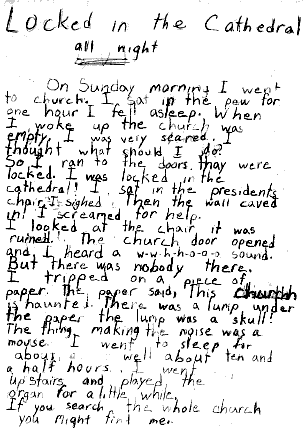 Locked in the Cathedral
all night
On Sunday morning I went
to church. I sat in the pew for
one hour I fell asleep. When
I woke up the church was
empty. I was very scared. I
thought what should I do?
So I ran to the doors. thay were
locked. I was locked in the
cathedral! I sat in the presidents
chair. I sighed. Then the wall caved
in! I screamed for help.
I looked at the chair it was
ruined! The church door opened
and I heard a w-w-h-o-o-o sound.
But there was nobody there.
I tripped on a piece of
paper. The paper said, This church
is haunted. There was a lump under
the paper the lump was a skull!
The thing making the noise was a
mouse. I went to sleep for
about well about ten and
a half hours. I went
upstairs and played the
organ for a little while.
If you search the whole church
you might find me.